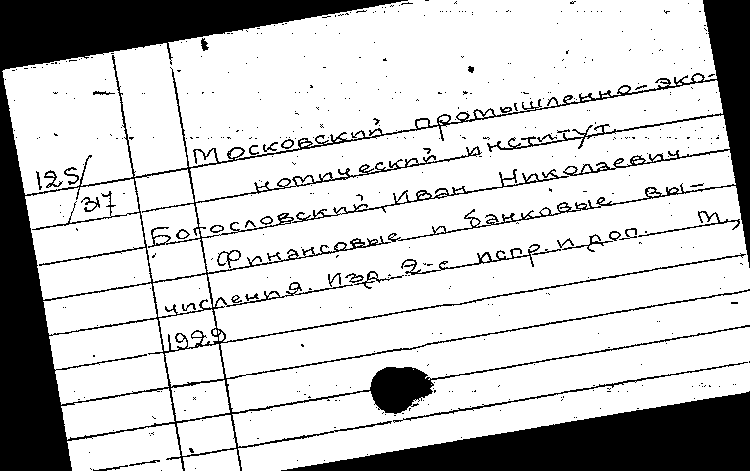 Московский промышленно-эко-
номический институт.
125/317
Богословский, Иван Николаевич.
Финансовые и банковые вы-
числения. Изд. 2-е испр. и доп. М.,
1929